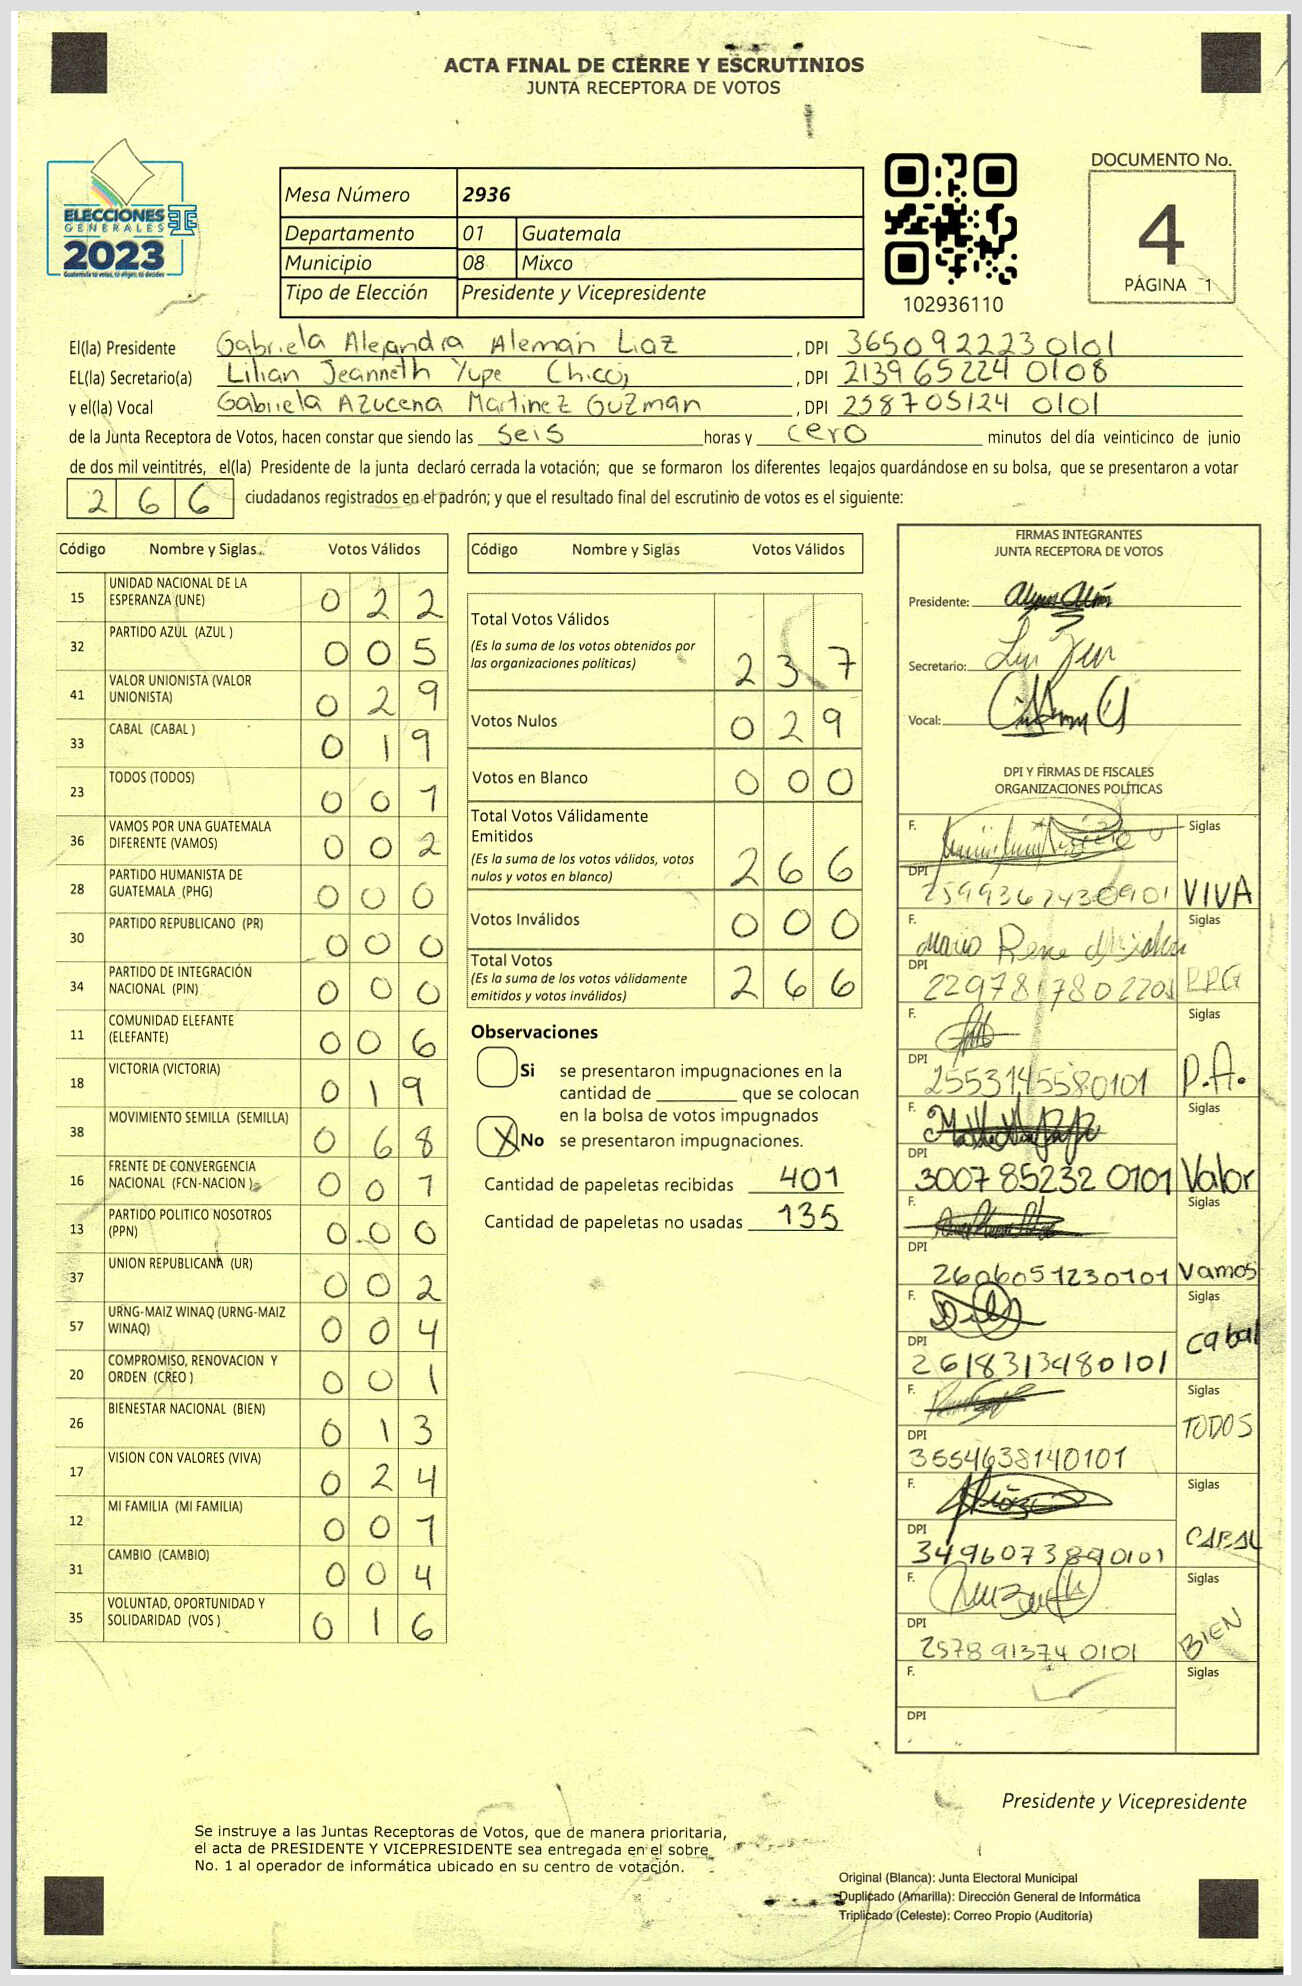 ACTA FINAL DE CIERRE Y ESCRUTINIOS
JUNTA RECEPTORA DE VOTOS
ELECCIONES
GENERALES
2023
Guatemala tú votas, tú eliges, tú decides
Mesa Número 2936
Departamento 01 Guatemala
Municipio 08 Mixco
Tipo de Elección Presidente y Vicepresidente
102936110
DOCUMENTO No.
4
PÁGINA 1
El(la) Presidente Gabriela Alejandra Alemán Liaz , DPI 365092223 0101
EL(la) Secretario(a) Lilian Jeanneth Yupe Chicoj , DPI 2139 65224 0108
y el(la) Vocal Gabriela Azucena Martinez Guzman , DPI 258705124 0101
de la Junta Receptora de Votos, hacen constar que siendo las seis horas y cero minutos del día veinticinco de junio
de dos mil veintitrés, el(la) Presidente de la junta declaró cerrada la votación; que se formaron los diferentes legajos guardándose en su bolsa, que se presentaron a votar
2 6 6 ciudadanos registrados en el padrón; y que el resultado final del escrutinio de votos es el siguiente:
Código Nombre y Siglas Votos Válidos
15 UNIDAD NACIONAL DE LA ESPERANZA (UNE) 0 2 2
32 PARTIDO AZUL (AZUL ) 0 0 5
41 VALOR UNIONISTA (VALOR UNIONISTA) 0 2 9
33 CABAL (CABAL ) 0 1 9
23 TODOS (TODOS) 0 0 1
36 VAMOS POR UNA GUATEMALA DIFERENTE (VAMOS) 0 0 2
28 PARTIDO HUMANISTA DE GUATEMALA (PHG) 0 0 0
30 PARTIDO REPUBLICANO (PR) 0 0 0
34 PARTIDO DE INTEGRACIÓN NACIONAL (PIN) 0 0 0
11 COMUNIDAD ELEFANTE (ELEFANTE) 0 0 6
18 VICTORIA (VICTORIA) 0 1 9
38 MOVIMIENTO SEMILLA (SEMILLA) 0 6 8
16 FRENTE DE CONVERGENCIA NACIONAL (FCN-NACION ) 0 0 1
13 PARTIDO POLITICO NOSOTROS (PPN) 0 0 0
37 UNION REPUBLICANA (UR) 0 0 2
57 URNG-MAIZ WINAQ (URNG-MAIZ WINAQ) 0 0 4
20 COMPROMISO, RENOVACION Y ORDEN (CREO ) 0 0 1
26 BIENESTAR NACIONAL (BIEN) 0 1 3
17 VISION CON VALORES (VIVA) 0 2 4
12 MI FAMILIA (MI FAMILIA) 0 0 1
31 CAMBIO (CAMBIO) 0 0 4
35 VOLUNTAD, OPORTUNIDAD Y SOLIDARIDAD (VOS ) 0 1 6
Código Nombre y Siglas Votos Válidos
Total Votos Válidos 2 3 7
(Es la suma de los votos obtenidos por
las organizaciones políticas)
Votos Nulos 0 2 9
Votos en Blanco 0 0 0
Total Votos Válidamente
Emitidos 2 6 6
(Es la suma de los votos válidos, votos
nulos y votos en blanco)
Votos Inválidos 0 0 0
Total Votos 2 6 6
(Es la suma de los votos válidamente
emitidos y votos inválidos)
Observaciones
Si se presentaron impugnaciones en la
cantidad de ________ que se colocan
en la bolsa de votos impugnados
X No se presentaron impugnaciones.
Cantidad de papeletas recibidas 401
Cantidad de papeletas no usadas 135
FIRMAS INTEGRANTES
JUNTA RECEPTORA DE VOTOS
Presidente:
Secretario:
Vocal:
DPI Y FIRMAS DE FISCALES
ORGANIZACIONES POLÍTICAS
F. Siglas
DPI 2599362430901 VIVA
F. Mario Rene Siglas
DPI 2297817802201
F. Siglas
DPI 2553145580101 P.A.
F. Siglas
DPI 3007 85232 0101 Valor
F. Siglas
DPI 2606051230101 Vamos
F. Siglas
DPI 2618313480101 cabal
F. Siglas
DPI 3554638140101 TODOS
F. Siglas
DPI 3496073890101 CABAL
F. Siglas
DPI 2578 91374 0101 BIEN
F. Siglas
DPI
Presidente y Vicepresidente
Se instruye a las Juntas Receptoras de Votos, que de manera prioritaria,
el acta de PRESIDENTE Y VICEPRESIDENTE sea entregada en el sobre
No. 1 al operador de informática ubicado en su centro de votación.
Original (Blanca): Junta Electoral Municipal
Duplicado (Amarilla): Dirección General de Informática
Triplicado (Celeste): Correo Propio (Auditoría)